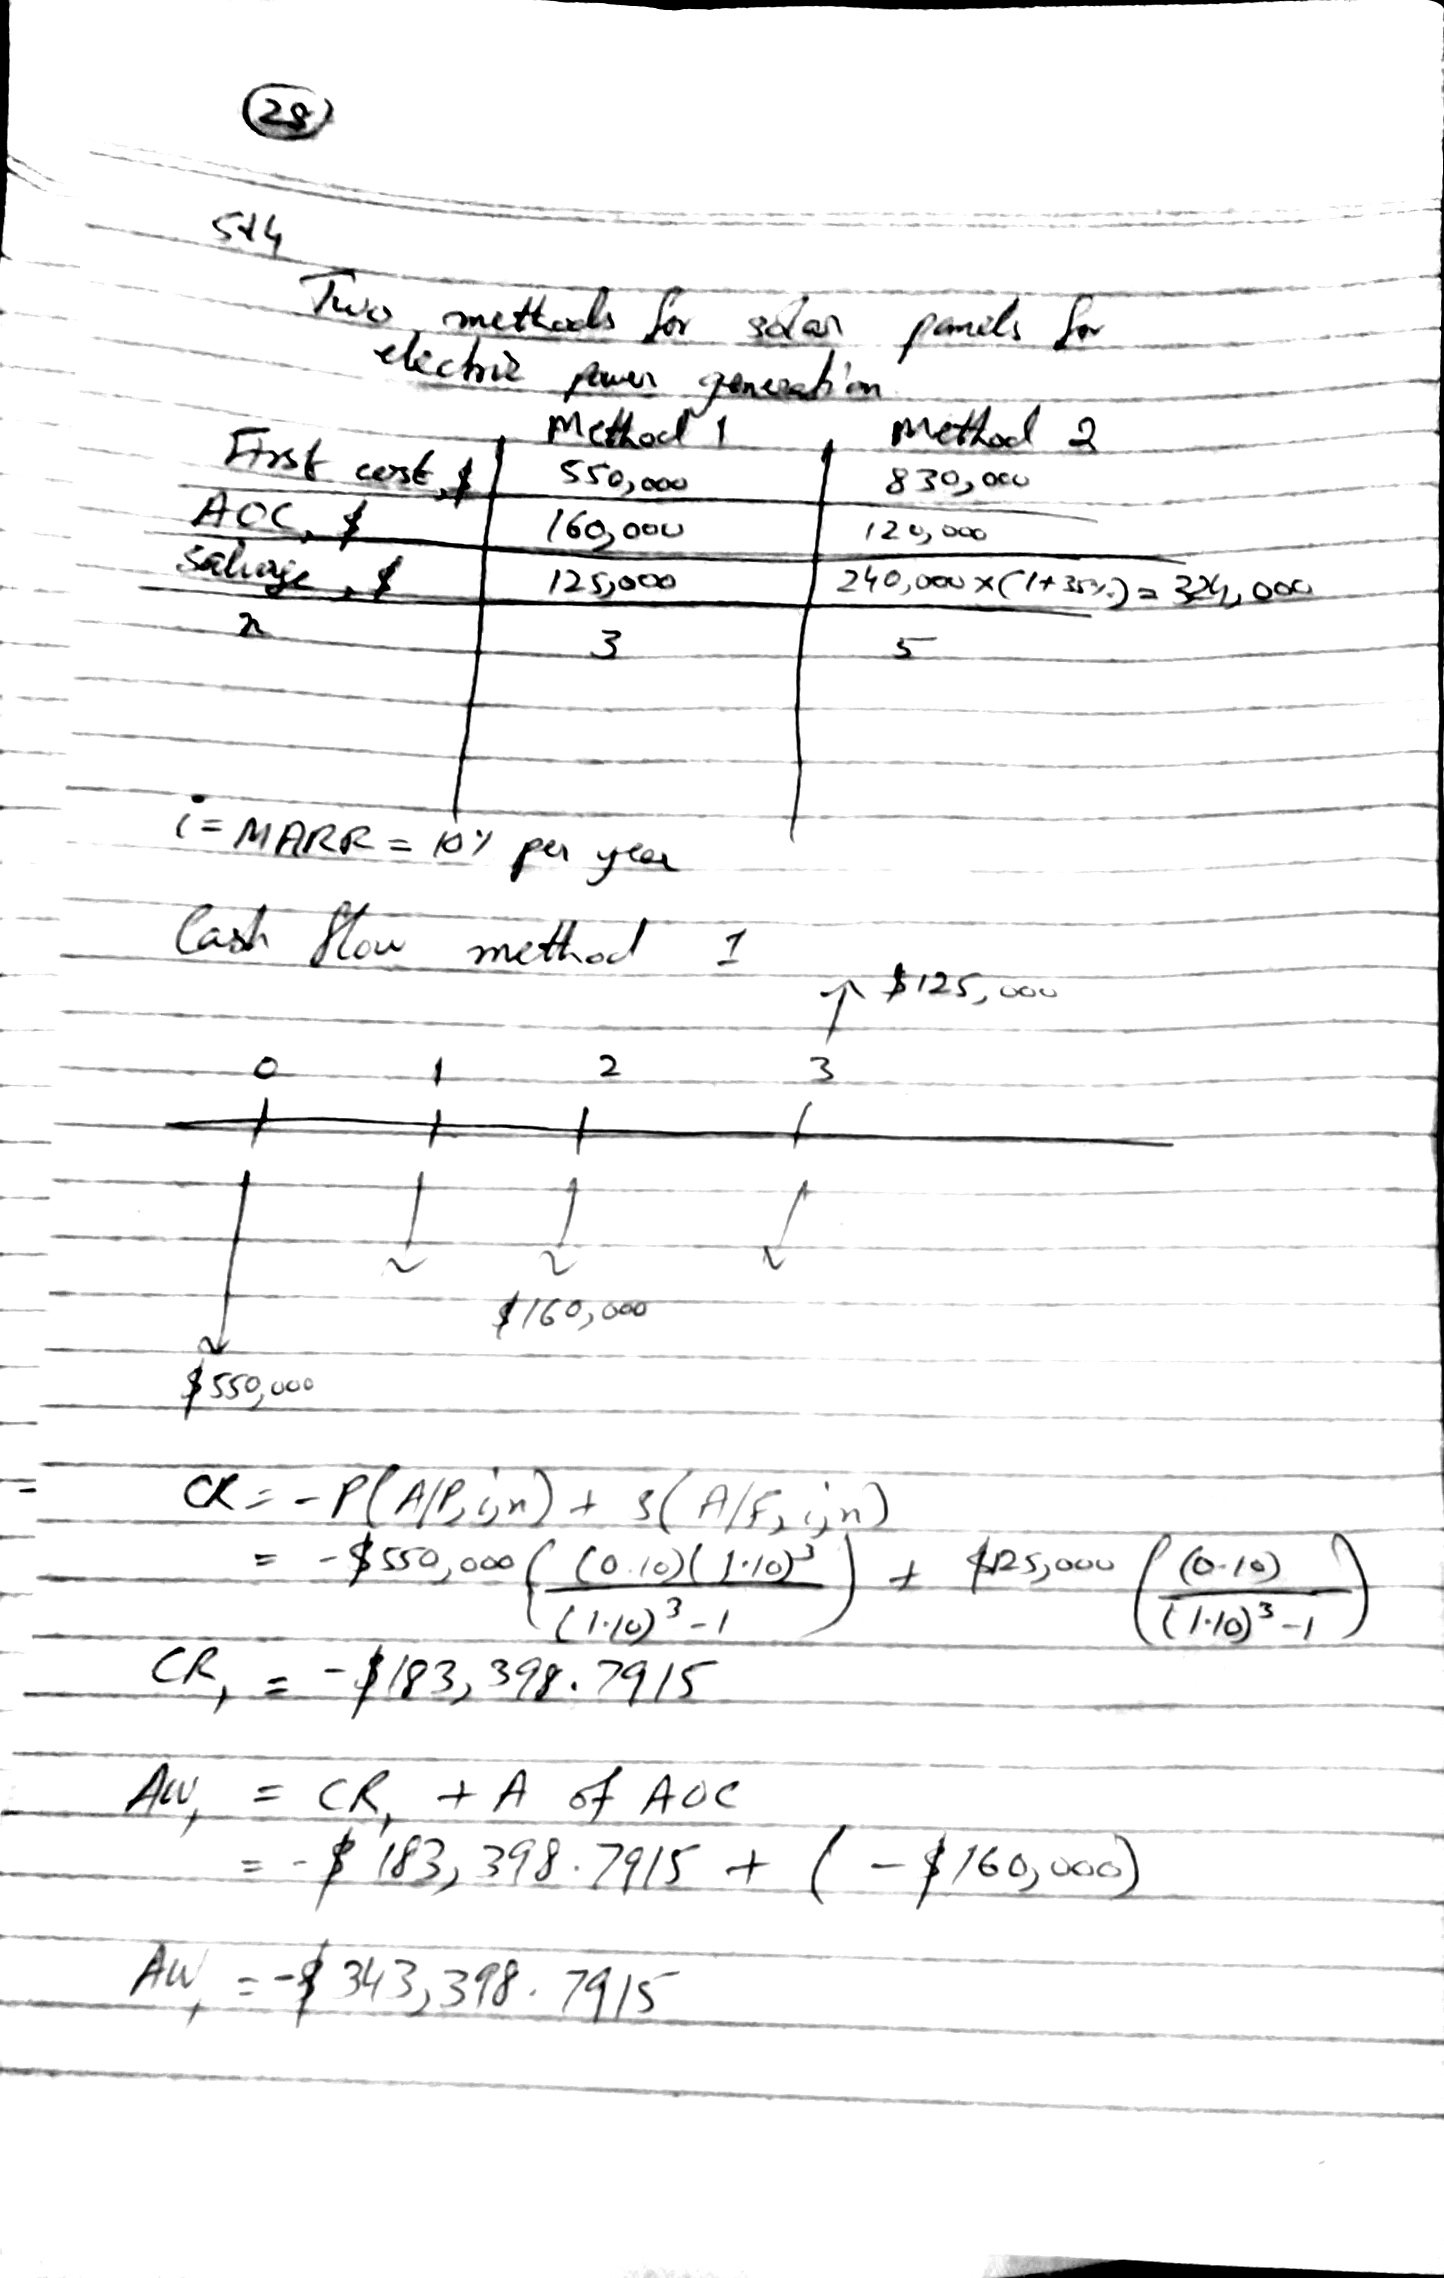 28
5.14
Two methods for solar panels for
electric power generation
Method 1 Method 2
First cost, $ 550,000 830,000
AOC, $ 160,000 120,000
Salvage, $ 125,000 240,000 x (1+35%) = 324,000
n 3 5
i = MARR = 10% per year
Cash flow method 1
$125,000
0 1 2 3
$160,000
$550,000
CR = -P(A/P, i, n) + S(A/F, i, n)
= -$550,000 ( (0.10)(1.10)³ / (1.10)³ - 1 ) + $125,000 ( (0.10) / (1.10)³ - 1 )
CR₁ = -$183,398.7915
AW₁ = CR₁ + A of AOC
= -$183,398.7915 + (-$160,000)
AW₁ = -$343,398.7915